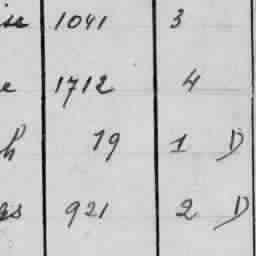 1041 3
e 1712 4
h 19 1 D
gs 921 2 D